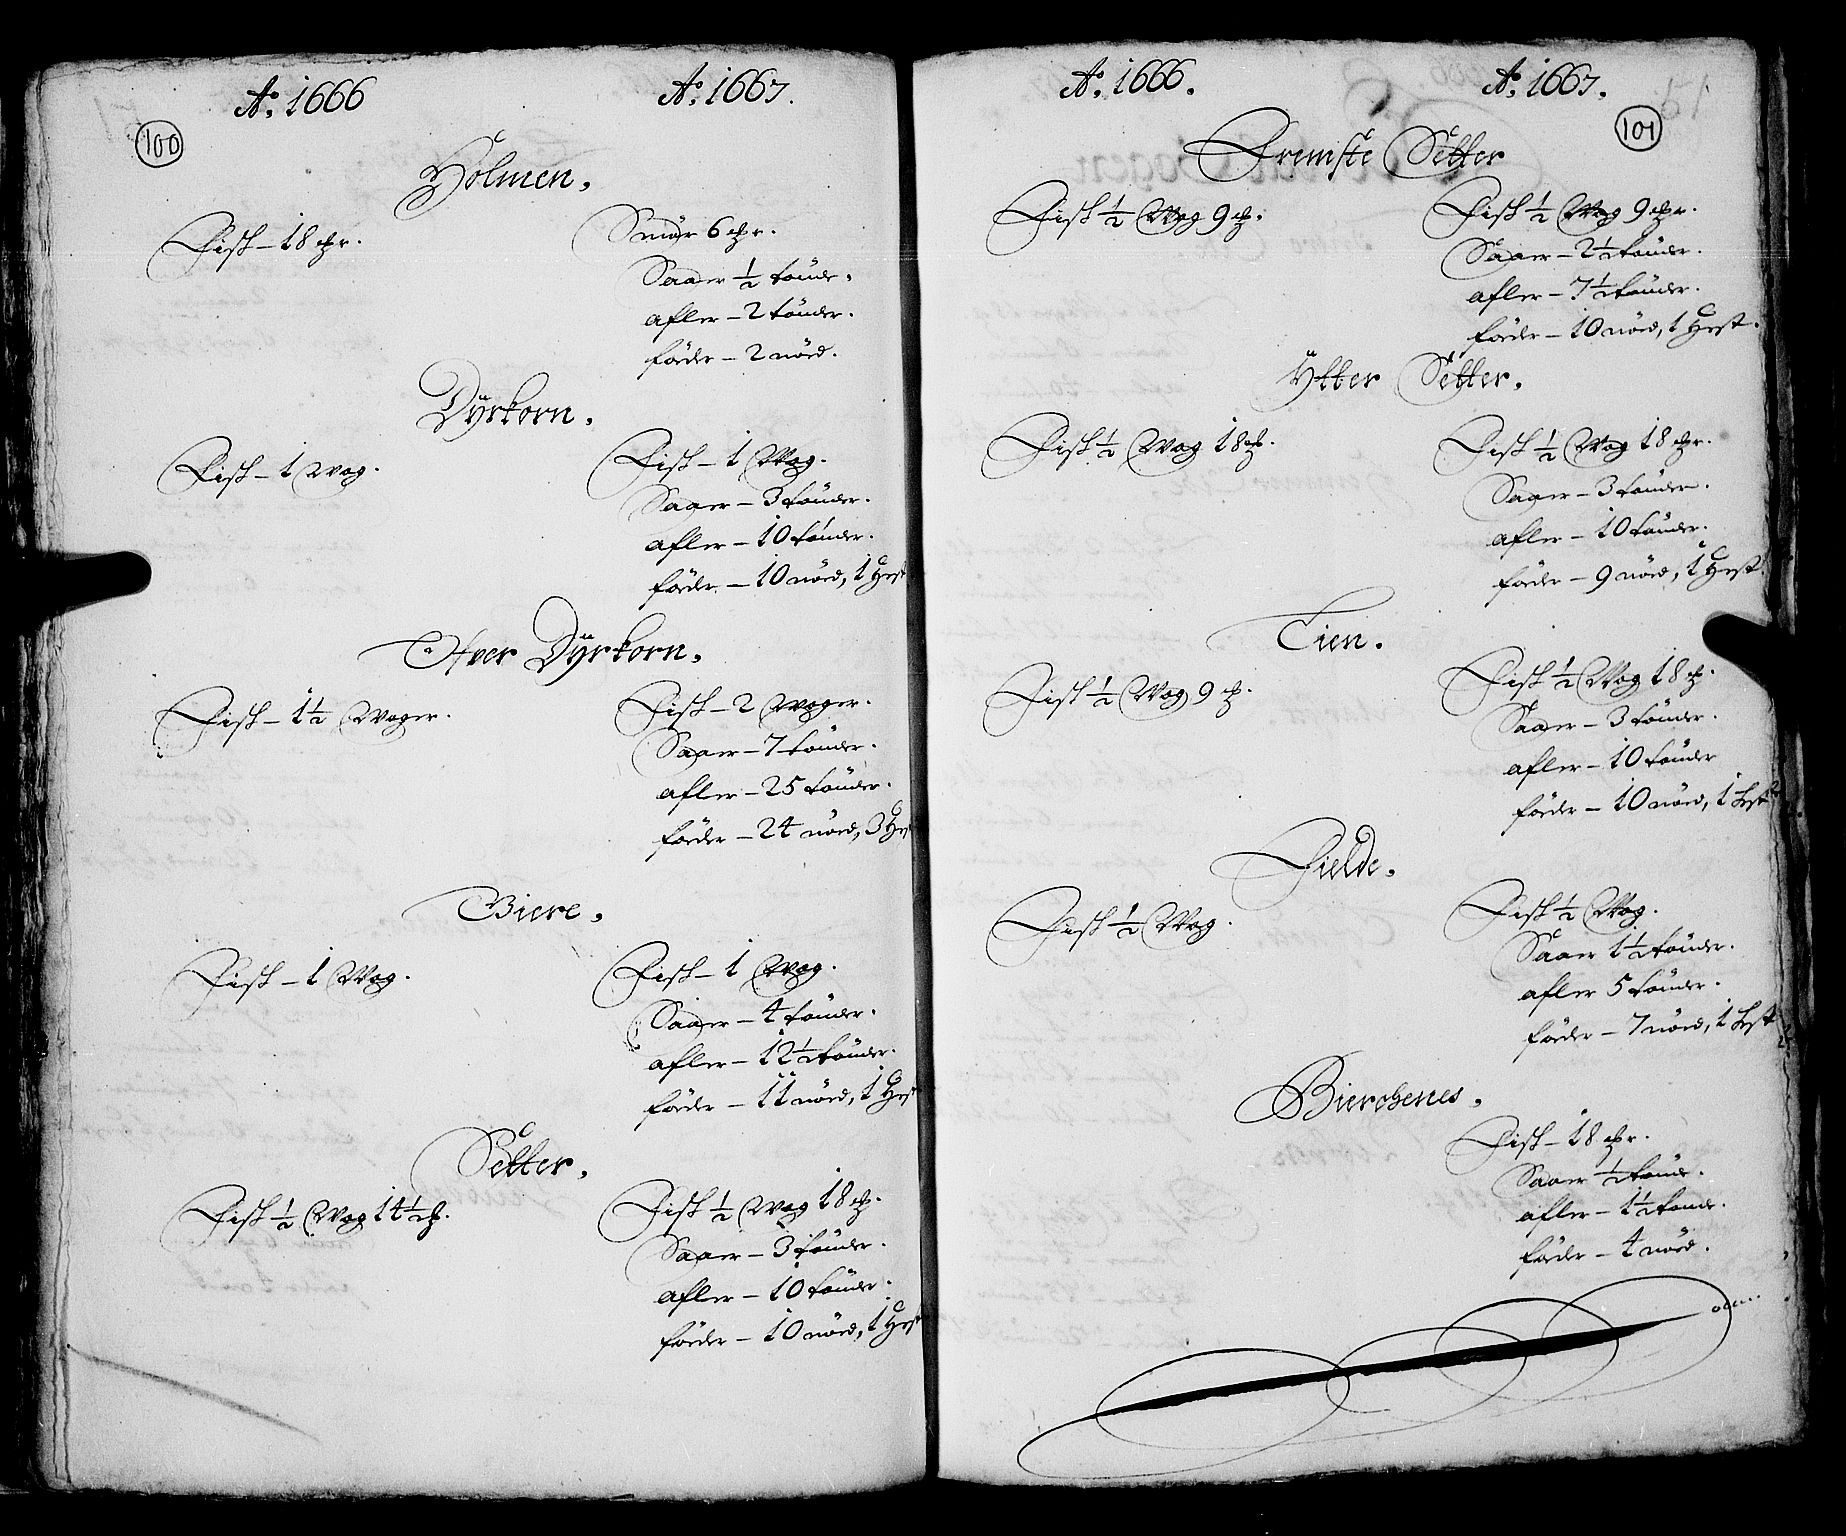 100
Ao. 1666
Ao. 1667.
Holmen.
Fisk – 18 pr.
Smör 6 pr.
Saaer ½ tönde.
afler – 2 tönder.
föder – 2 nöed.
Dÿrkorn.
Fisk – 1 wog.
Fisk – 1 Wog.
Saaer – 3 tönder.
afler – 10 tönder.
föder – 10 nöed, 1 Hest
Ofver Dÿrkorn.
Fisk – 1½ Woger.
Fisk – 2 woger.
Saaer – 7 tönder.
afler – 25 tönder.
föder – 24 nöed, 3 Hest
Biere.
Fisk – 1 Wog.
Fisk – 1 Wog.
Saaer – 4 tönder.
afler – 12½ tönder.
föder – 11 nöed, 1 Hest
Setter.
Fisk ½ Wog 14½ p.
Fisk ½ Wog 18 p.
Saaer – 3 tönder.
afler – 10 tönder.
föder – 10 nöed, 1 Hest
101
Ao. 1666.
Ao. 1667.
Fremste Setter
Fisk ½ Wog 9 p.
Fisk ½ Wog 9 pr.
Saaer – 2½ tönder.
afler – 7½ tönder.
föder – 10 nöed, 1 Hest.
Ÿtter Setter.
Fisk ½ Wog 18 p.
Fisk ½ Wog 18 pr.
Saaer – 3 tönder.
afler – 10 tönder.
föder – 9 nöed, 1 Hest.
Lien.
Fisk ½ Wog 9 p.
Fisk ½ Wog 18 p.
Saaer – 3 tönder.
afler – 10 tönder
föder – 10 nöed, 1 Hest
Fielde.
Fisk ½ Wog.
Fisk ½ Wog.
Saaer 1½ tönder.
afler 5 tönder.
föder – 7 nöed, 1 Hest
Fisk – 18 pr.
Saaer ½ tönde.
afler – 1½ tönde.
föder – 4 nöed.